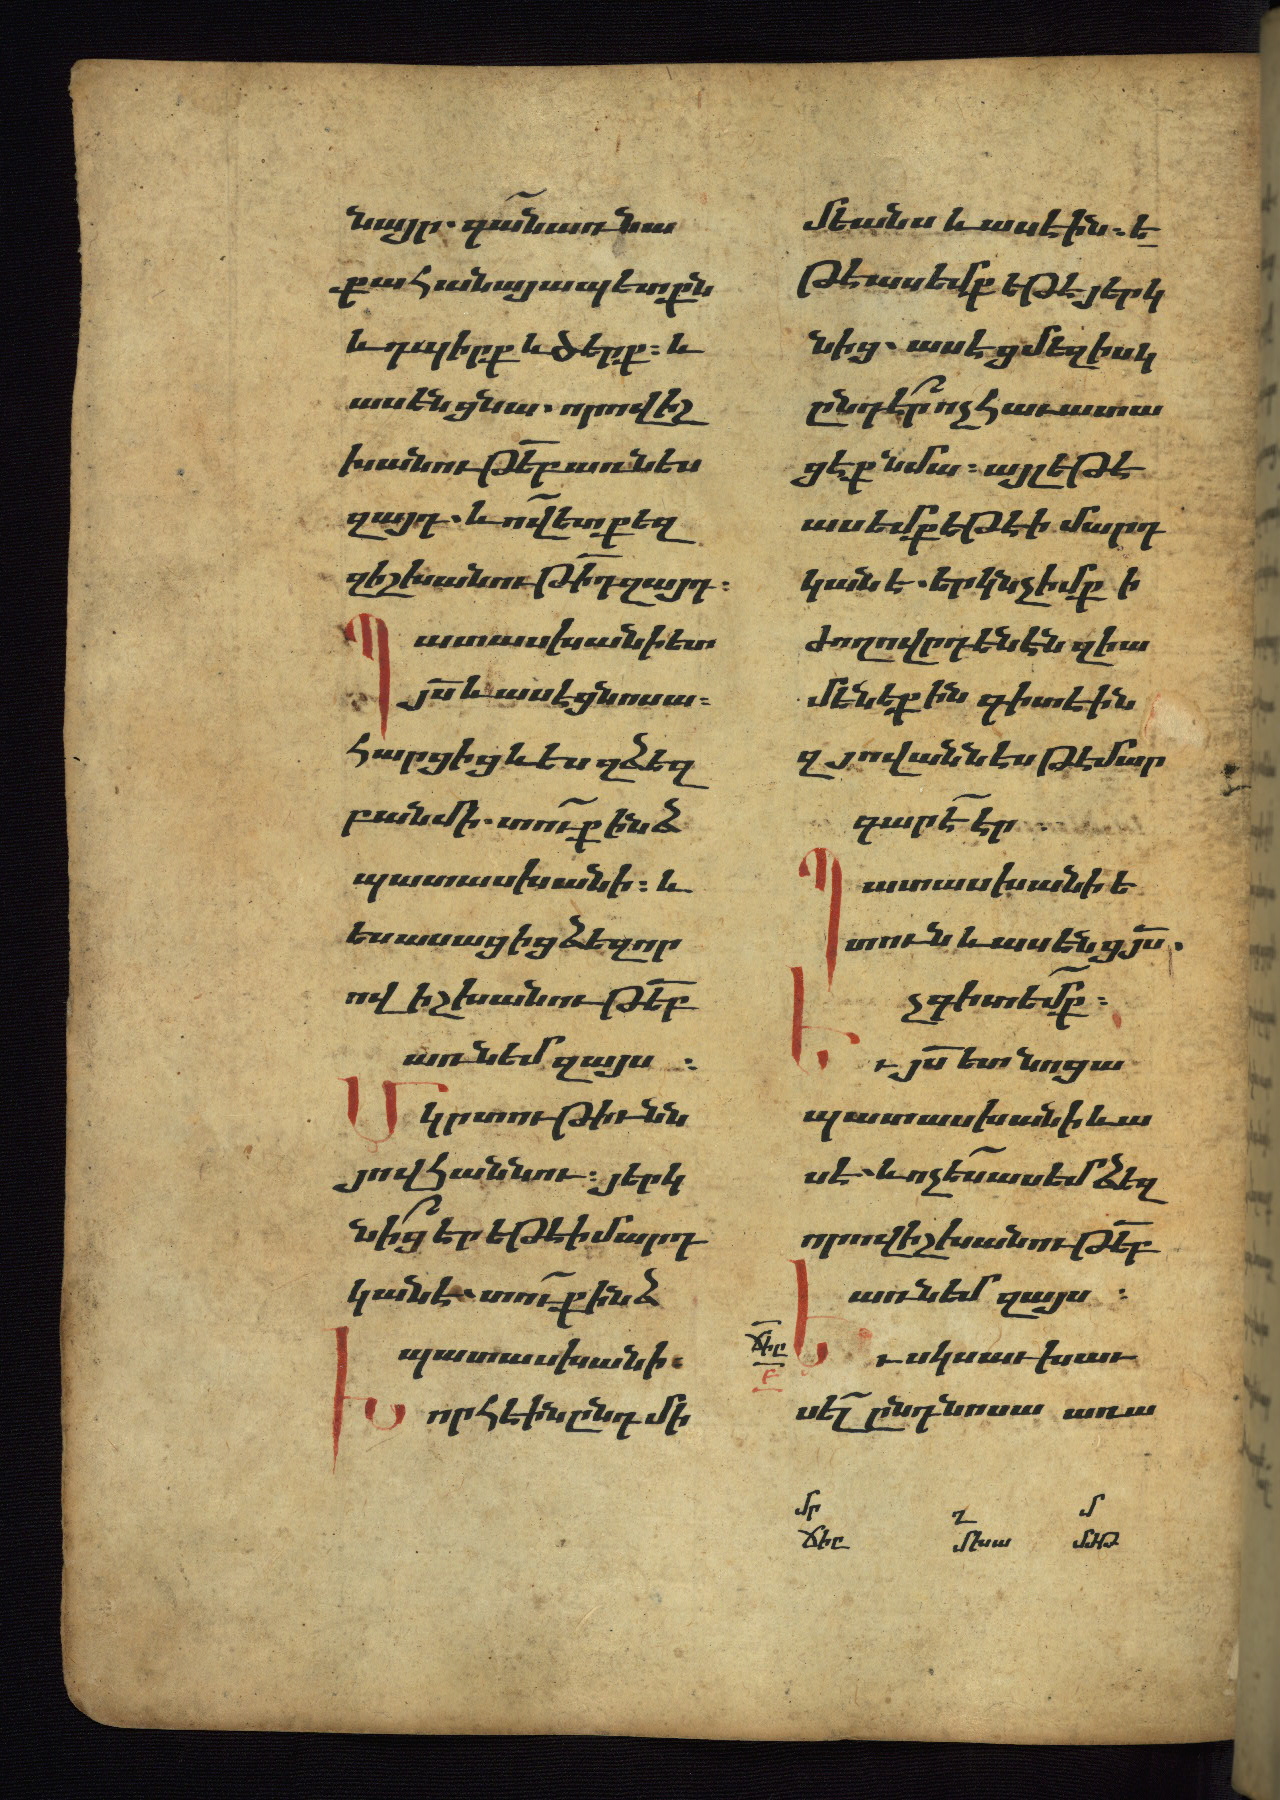 նայր· գա՜նառնա
քահանայապետքն
և դպիրք և ծերք։ և
ասեն ցնա· որով իշ
խանութե՜բ առնես
զայդ· և ո՜վ ետ քեզ
զիշխանութի՜դ զայդ։
Պատասխանի ետ
յս՜ և ասէ ցնոսա։
հարցից և ես զձեզ
բան մի· տո՜ւք ինձ
պատասխանի։ և
ես ասացից ձեզ որ
ով իշխանութե՜բ
առնեմ զայս ։
Մկրտութիւնն
յովհաննու։ յերկ
նի՜ց էր եթէ ի մարդ
կանէ· տո՜ւք ինձ
պատասխանի։
Խորհէին ընդ մի
մեանս և ասէին։ ե
թէ ասեմք եթէ յերկ
նից· ասէ ցմեզ իսկ
ընդէ՜ր ոչ հաւատա
ցեք նմա։ այլ եթէ
ասեմք եթէ ի մարդ
կանէ· երկնչիմք ի
ժողովրդենէն զի ա
մենեքին գիտէին
զյովաննէս թէ մար
գարէ՜ էր ։
Պատասխանի ե
տուն և ասեն ցյս՜·
չգիտե՜մք։
Եւ յս՜ ետ նոցա
պատասխանի և ա
սէ· և ոչ ե՜ս ասեմ ձեզ
որով իշխանութե՜բ
առնեմ զայս ։
ՃԻԸ
Բ
Եւ սկսաւ խաւ
սե՜լ ընդ նոսա առա
մր
ճիը
ղ
մխա
մ